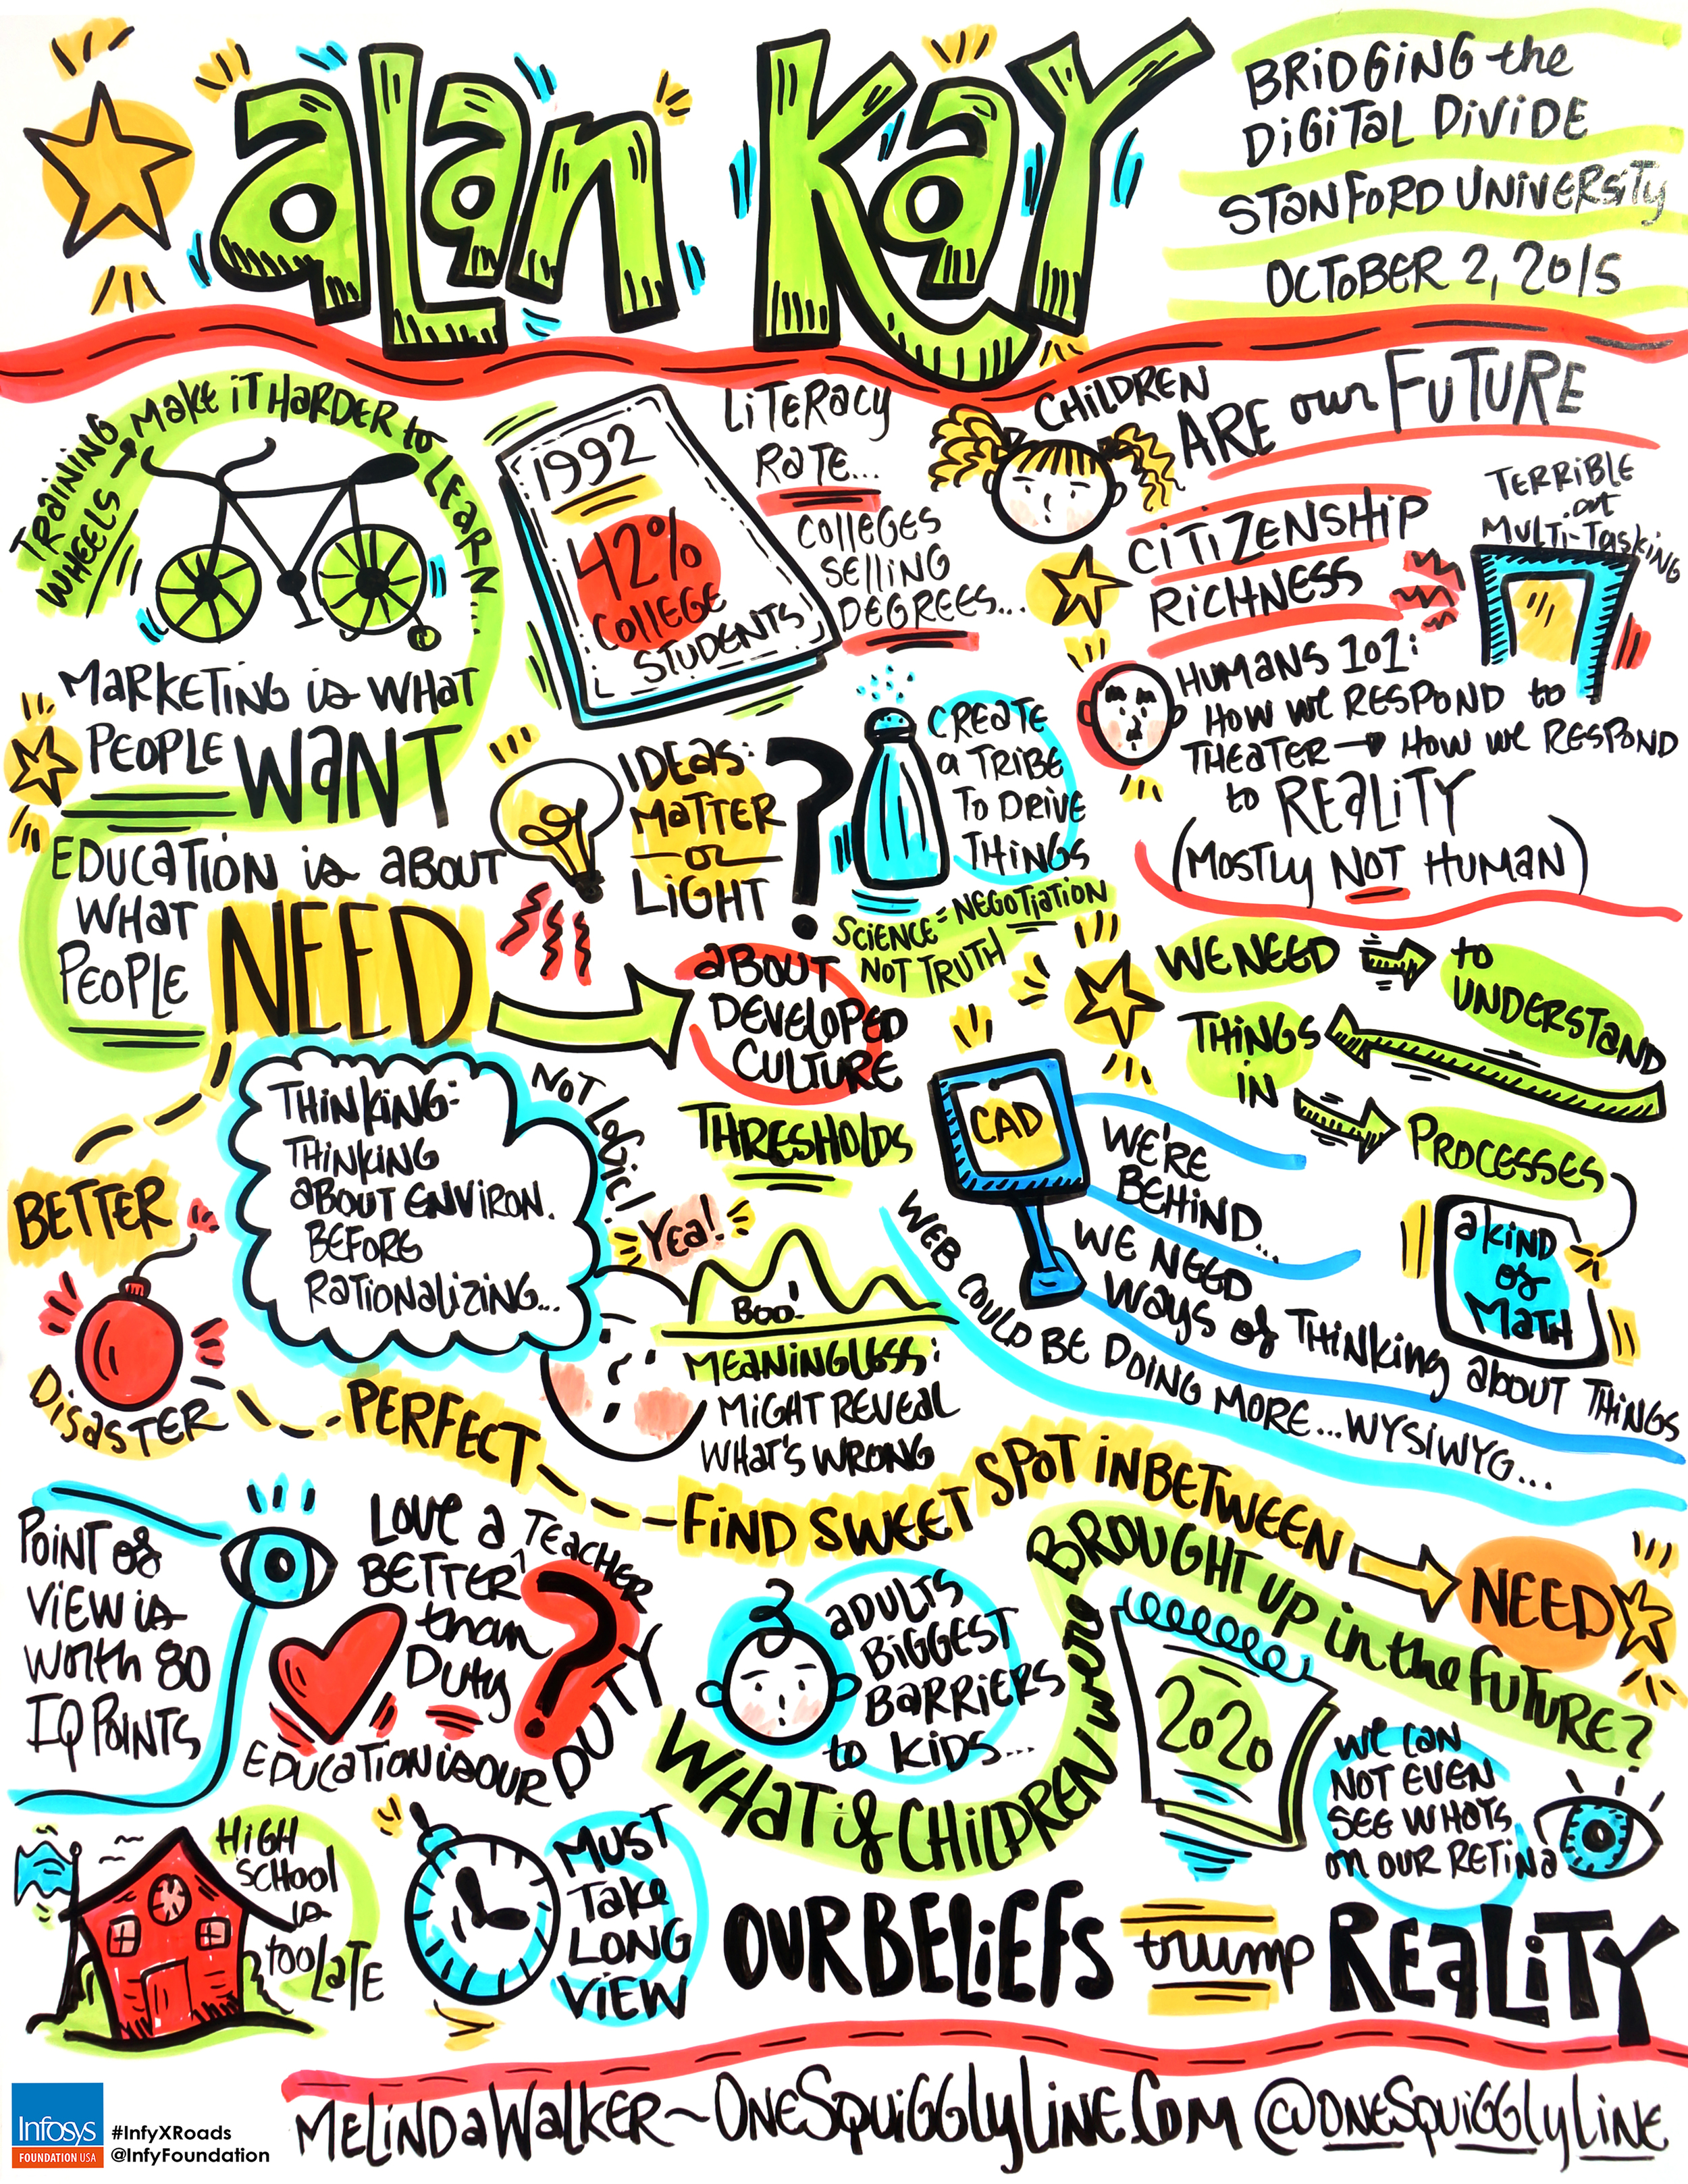 alan Kay
BRiDGiNG the
DiGiTaL DiViDE
STaNFORD UNiVERSiTy
OCToBER 2, 2015
TRaiNiNG
WHEELS → Make iT HaRDER to LEaRN...
MaRKETiNG is WHaT
PEOPLE WaNT
EDUCaTiON is aBOUT
WHaT
PEOPLE NEED
1992
42%
COllEGE
STUDENTS
LiTERacy
RaTE...
COllEGES
SElliNG
DEGREES...
CHiLDREN
ARE our FUTURE
CiTiZENSHiP
RiCHNESS
TERRiBLE
at
MULTi-TaskiNG
HUMaNS 101:
HOW WE RESPOND to
THEaTER → HOW WE RESPOND
to REaLiTY
(MOSTLy NOT HUMaN)
IDEas:
MaTTER
or
LiGHT
?
CREaTE
a TRiBE
To DRiVE
THiNGS
SCiENCE = NEGOTiaTiON
NOT TRUTH
aBOUT
DEVElOPED
CULTURE
THRESHOlDS
WE NEED
to
UNDERSTaND
THiNGS
iN
PROCESSES
a KiND
of
MaTH
CAD
WE'RE
BEHiND...
WE NEED
Ways of THiNkiNg aBOUT THiNGS
WEB COULD BE DOiNG MORE...WYSiWYG...
THiNkiNG:
THiNkiNG
aBOUT ENViRON.
BEFORE
RaTiONaLiZiNG...
NOT LOGiC!
BETTER
DiSaSTER
PERFECT
FiND SWEET SPOT iNBETWEEN
NEED
Yea!
BOO!
MEaNiNGLESS:
MiGHT REVEaL
WHaT'S WRONG
POiNT of
ViEW is
WORTH 80
IQ POiNTS
LOVE a TEaCHER
BETTER
than
DUTy
?
EDUCaTiON is OUR DUTY
aDULTS
BiGGEST
BaRRiERS
to KiDS...
WHaT if CHiLDREN were BROUGHT UP in the FUTURE?
2020
WE CaN
NOT EVEN
SEE WHaTS
oN OUR RETiNa
HiGH
SCHOOl
is
TOO LaTE
MUST
Take
LONG
ViEW
OUR BELiEFS trump REaLiTY
MELiNDa WaLKER ~ ONESQUiGGLyLiNE.COM @ONESQUiGGLyLiNE
Infosys
FOUNDATION USA
#InfyXRoads
@InfyFoundation